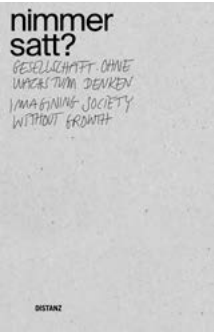 nimmer
satt?
GESELLSCHAFT OHNE
WACHSTUM DENKEN
IMAGINING SOCIETY
WITHOUT GROWTH
DISTANZ